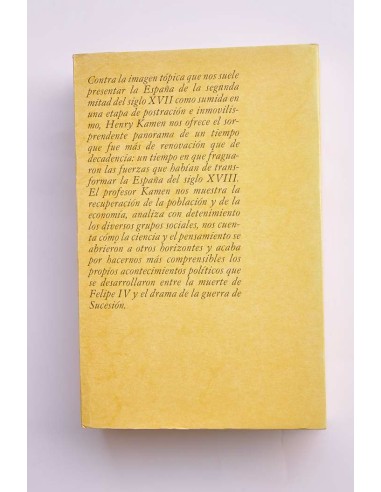 Contra la imagen tópica que nos suele
presentar la España de la segunda
mitad del siglo XVII como sumida en
una etapa de postración e inmovilis-
mo, Henry Kamen nos ofrece el sor-
prendente panorama de un tiempo
que fue más de renovación que de
decadencia: un tiempo en que fragua-
ron las fuerzas que habían de trans-
formar la España del siglo XVIII.
El profesor Kamen nos muestra la
recuperación de la población y de la
economía, analiza con detenimiento
los diversos grupos sociales, nos cuen-
ta cómo la ciencia y el pensamiento se
abrieron a otros horizontes y acaba
por hacernos más comprensibles los
propios acontecimientos políticos que
se desarrollaron entre la muerte de
Felipe IV y el drama de la guerra de
Sucesión.